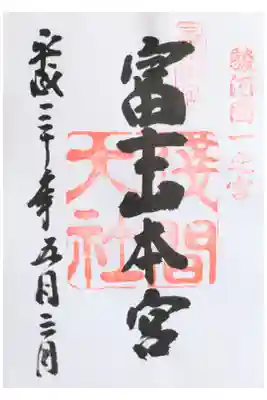 駿河國一之宮
富士山本宮
淺間大社
平成三十年五月二日